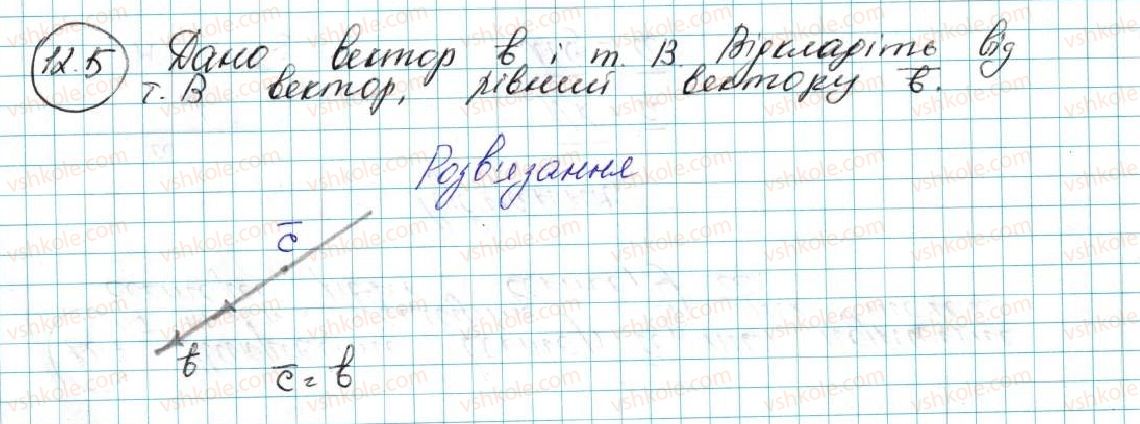 12.5 Дано вектор b̅ і т. В. Відкладіть від
т. В вектор, рівний вектору b̅.
Розв'язання
c̅
b̅
c̅ = b̅
vshkole.com